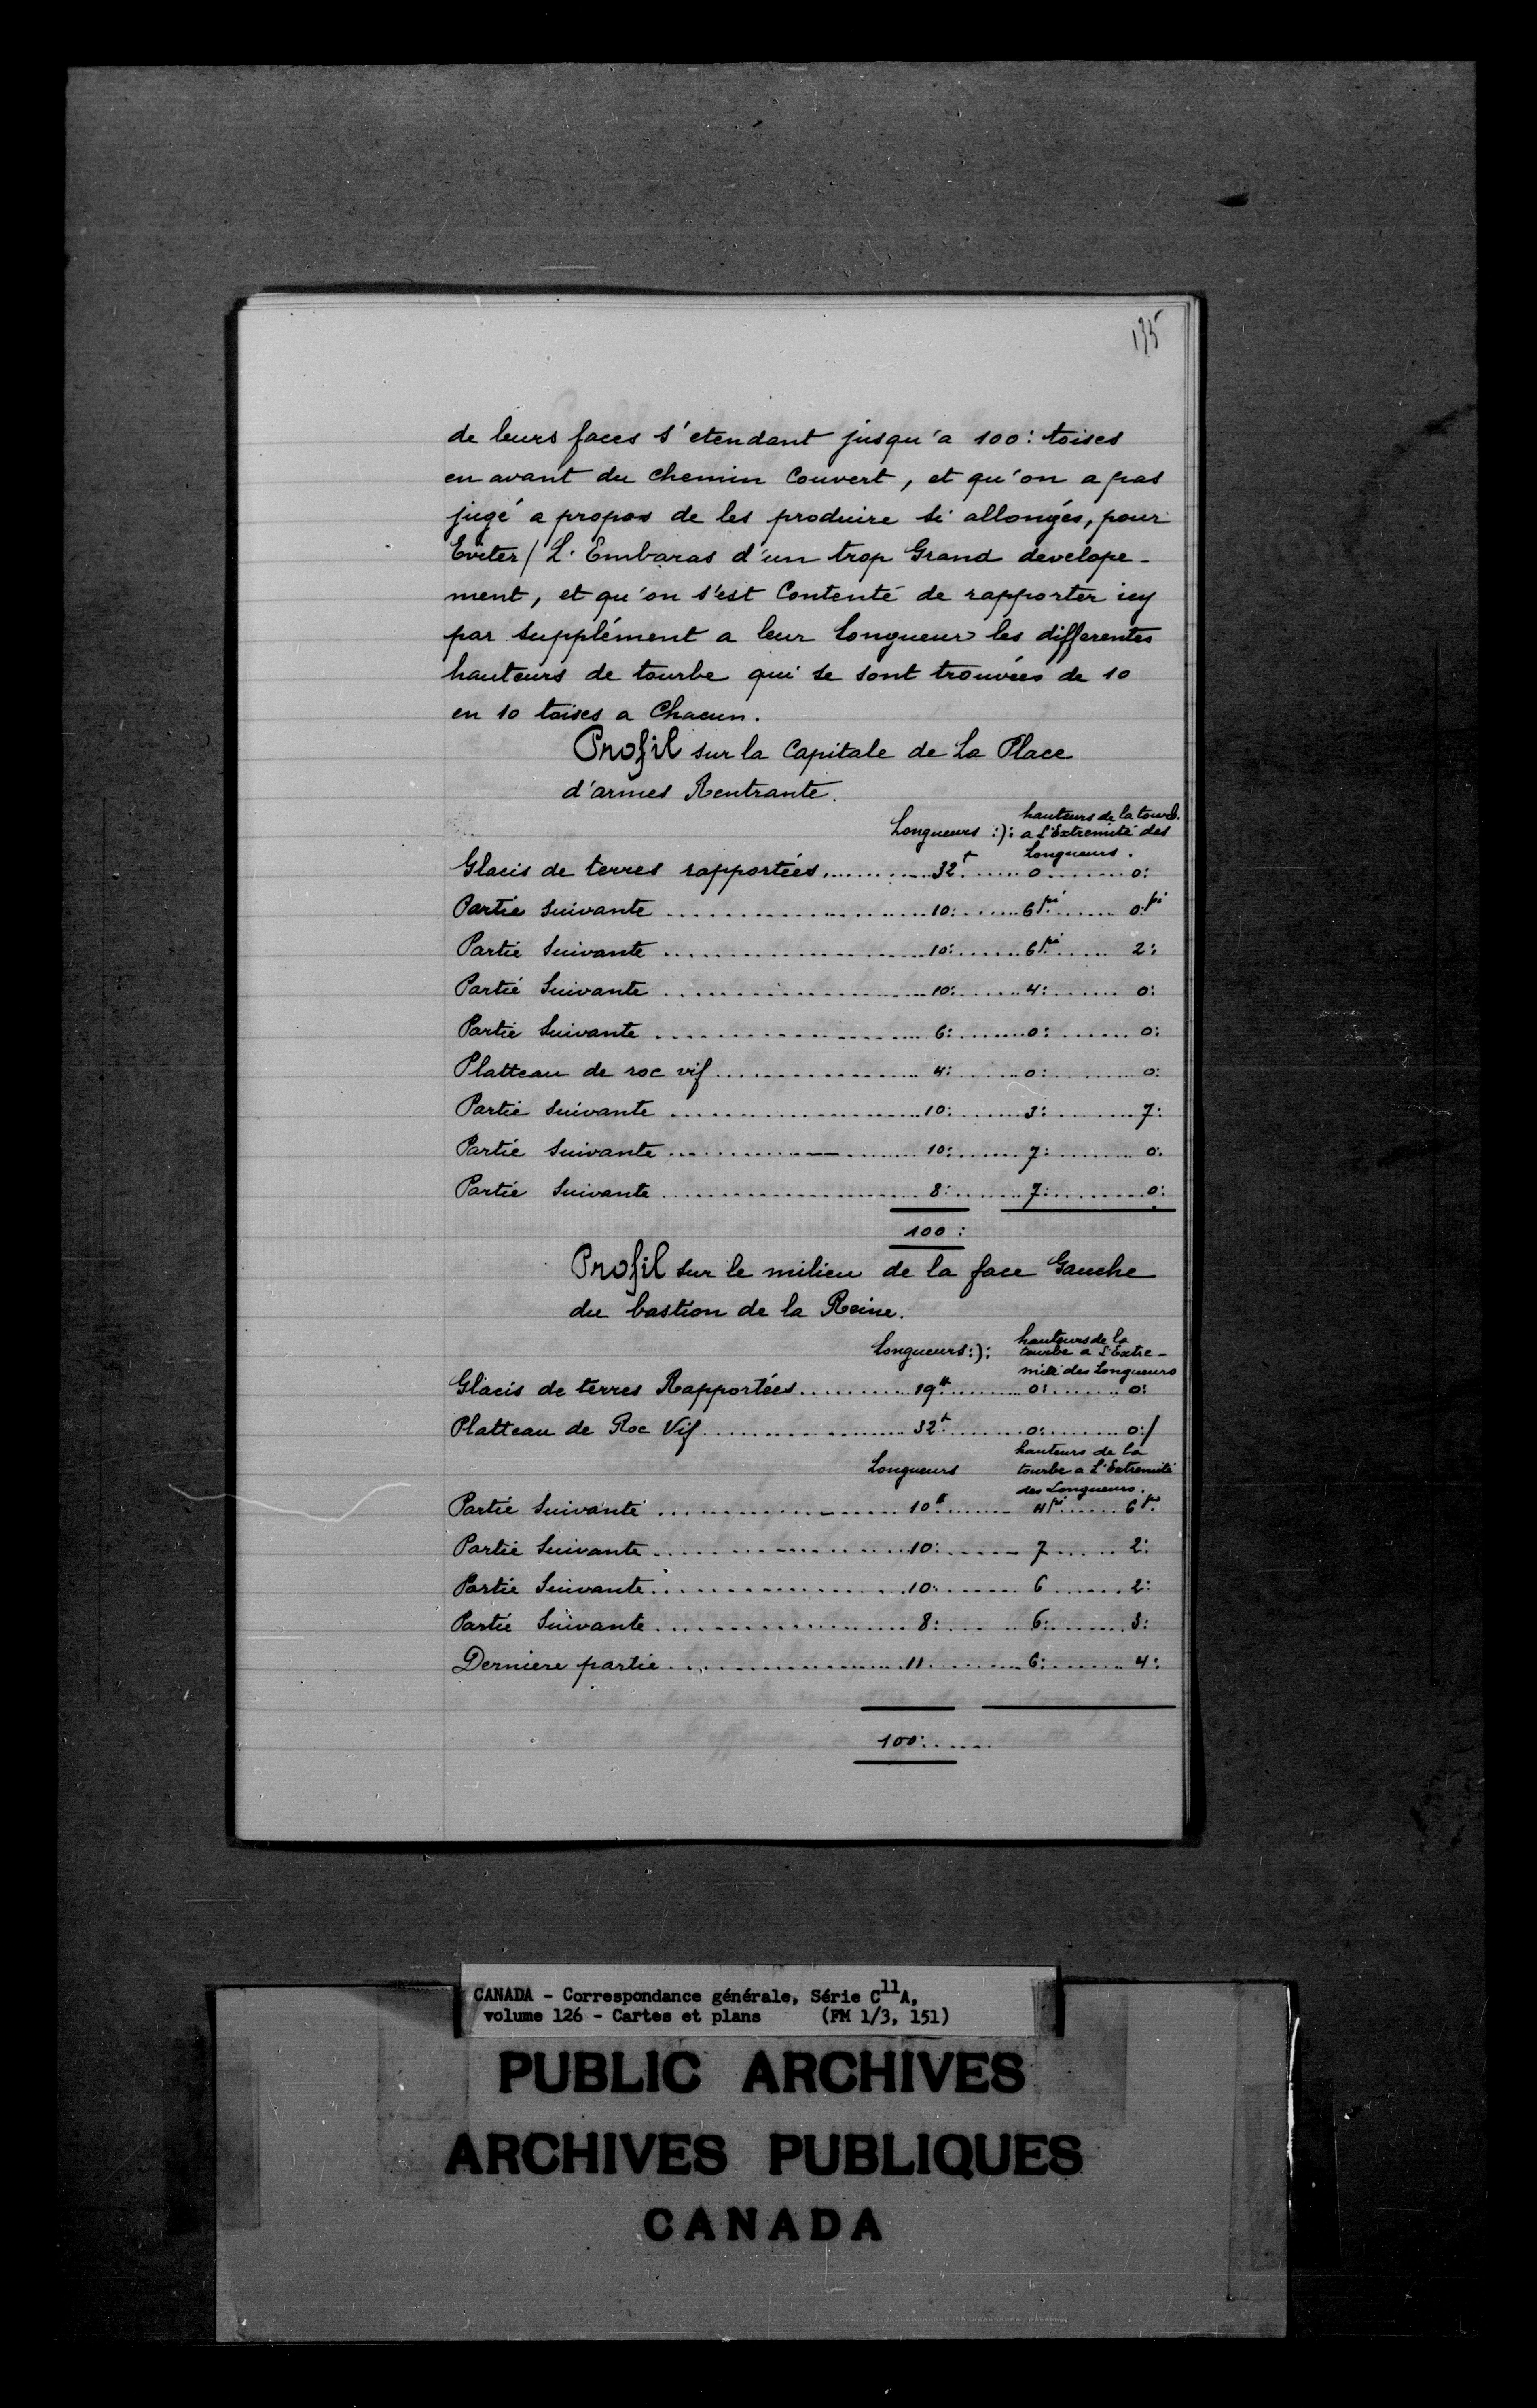 135
de leurs faces s'etendant jusqu'a 100: toises
en avant du chemin Couvert, et qu'on a pas
jugé a propos de les produire si allongés, pour
Eviter/ L'Embaras d'un trop Grand develope-
ment, et qu'on s'est Contenté de rapporter icy
par supplément a leur Longueur les differentes
hauteurs de tourbe qui se sont trouvées de 10
en 10 toises a Chacun.
Profil sur la Capitale de La Place
d'armes Rentrante.
Longueurs :): hauteurs de la tourb.
a L'Extremité des
Longueurs.
Glacis de terres rapportées............32t.......0.........0:
Partie Suivante........................10:.......6pi.......0:pi
Partie Suivante........................10:.......6pi.......2:
Partie Suivante........................10:.......4:........0:
Partie Suivante........................6:........0:........0:
Platteau de roc vif....................4:........0:........0:
Partie Suivante........................10:.......3:........7:
Partie Suivante........................10:.......7:........0:
Partie Suivante........................8:........7:........0:
100:
Profil sur le milieu de la face Gauche
du bastion de la Reine.
Longueurs:): hauteurs de la
tourbe a L'Extre-
mité des Longueurs
Glacis de terres Rapportées............19t.......0:........0:
Platteau de Roc Vif....................32t.......0:........0:/
Longueurs hauteurs de la
tourbe a L'Extremité
des Longueurs.
Partie Suivante........................10t.......4pi.......6po
Partie Suivante........................10:.......7.........2:
Partie Suivante........................10:.......6.........2:
Partie Suivante........................8:........6:........3:
Derniere partie........................11........6:........4:
100:.....
CANADA - Correspondance générale, Série C11A,
volume 126 - Cartes et plans (FM 1/3, 151)
PUBLIC ARCHIVES
ARCHIVES PUBLIQUES
CANADA